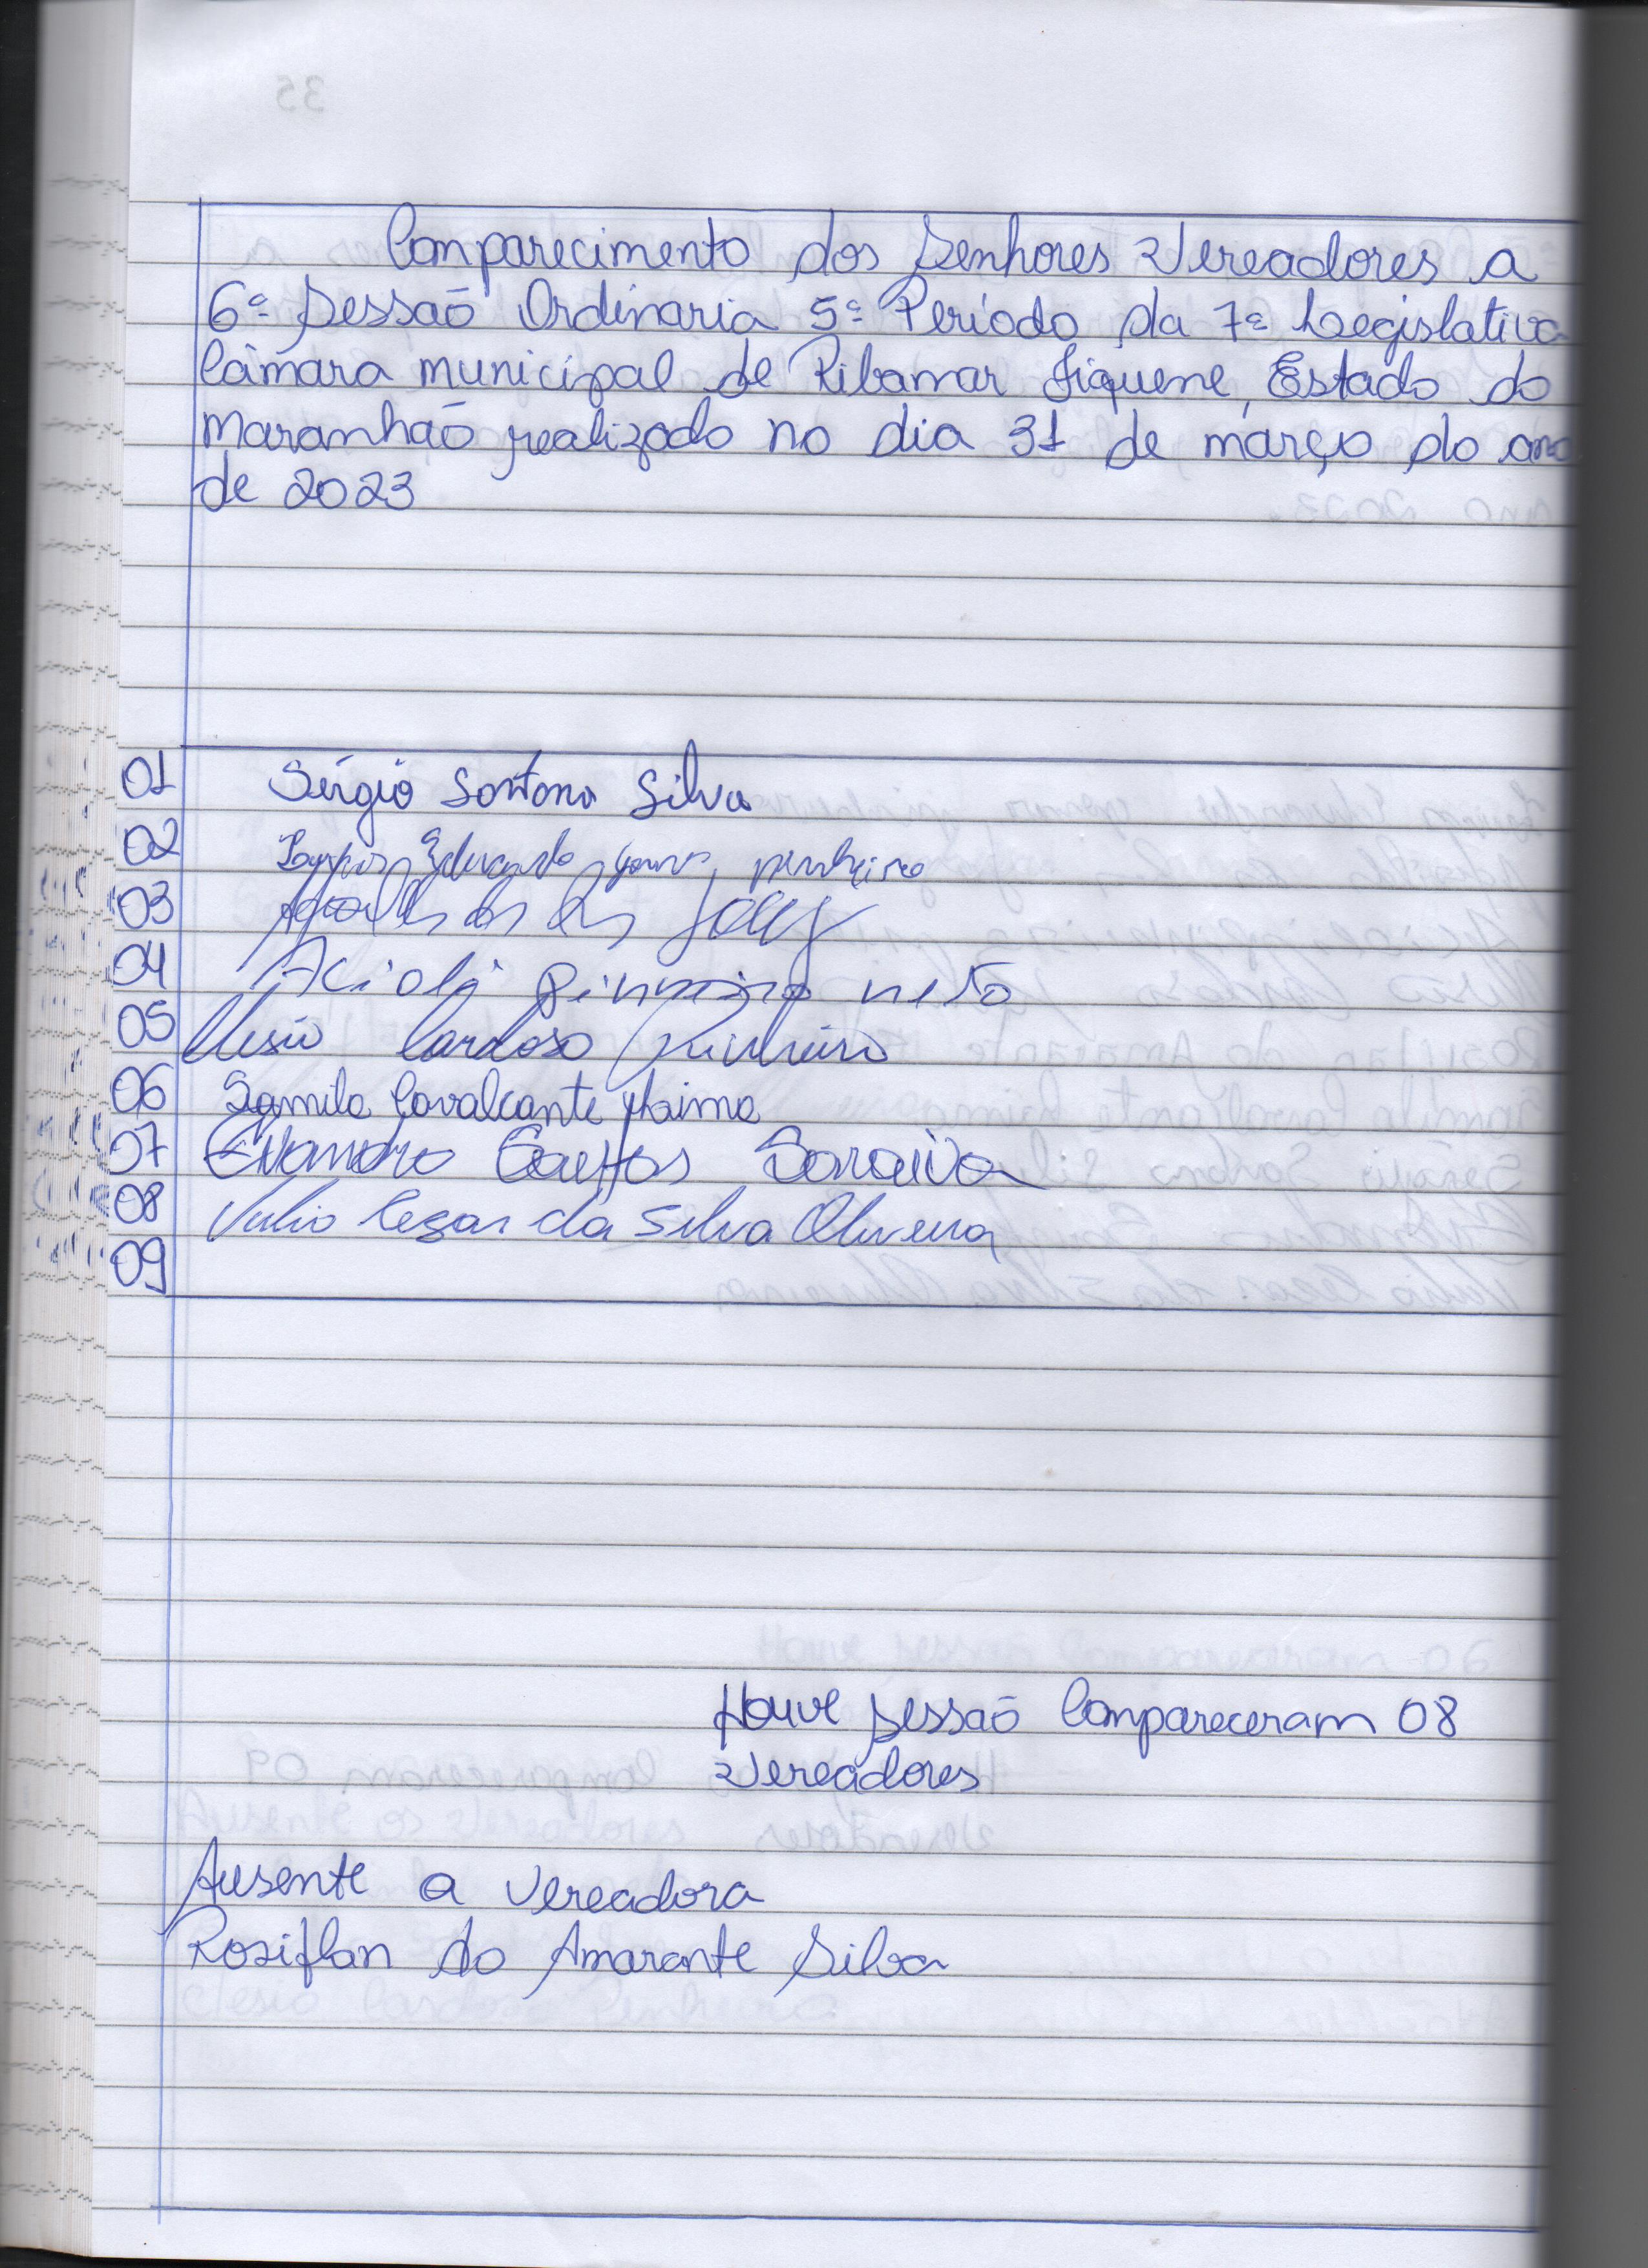 Comparecimento dos Senhores Vereadores a
6ª Sessaõ Ordinaria 5º Período da 7ª Legislativa
Câmara municipal de Ribamar Fiquene, Estado do
Maranhaõ realizado no dia 31 de março do ano
de 2023
01 Sérgio Santana Silva
02 Eduardo pinheiro
03
04 Acioli pinheiro neto
05 Clesio Cardoso Pinheiro
06 Samila Cavalcante Maima
07 Evandro Santos Saraiva
08 Julio Cezar da Silva Oliveira
09
Houve sessaõ Compareceram 08
Vereadores
Ausente a Vereadora
Rosiflan do Amarante Silva